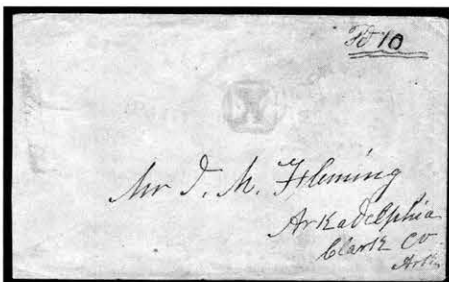 Pd 10
X
Mr J. M. Fleming
Arkadelphia
Clark Co
Arks